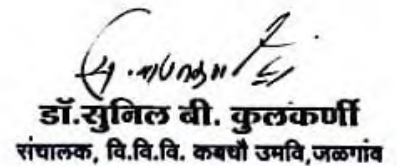 डॉ.सुनिल बी. कुलकर्णी
संचालक, वि.वि.वि. कबचौ उमवि,जळगांव